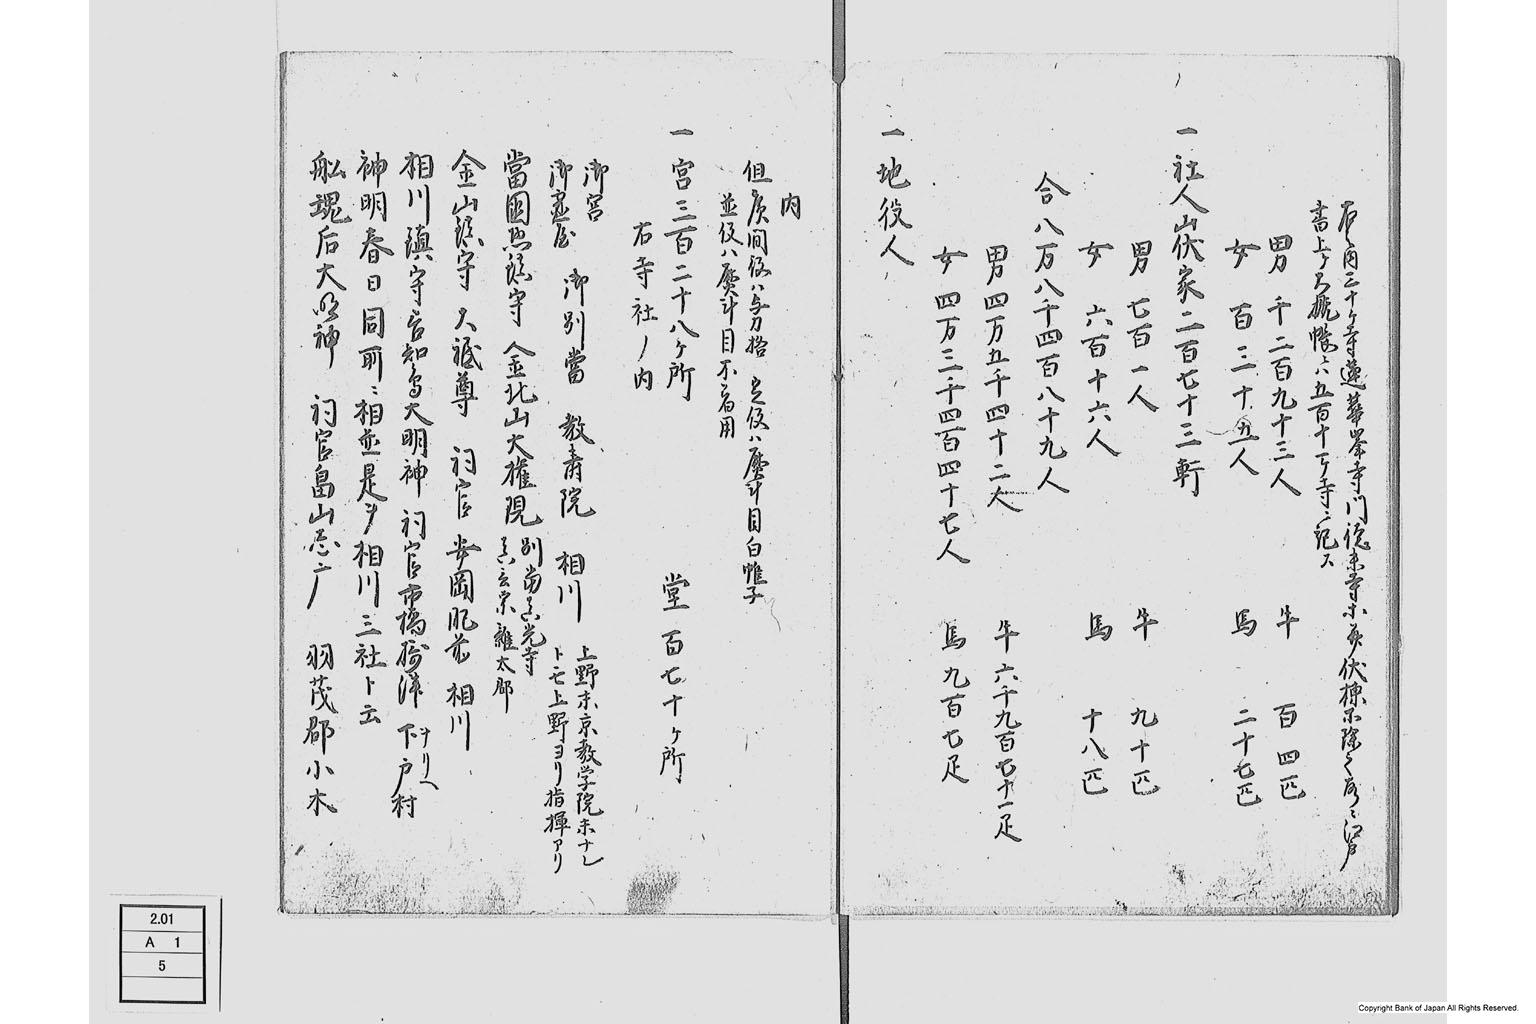 右之内三十ヶ寺蓮華峯寺門徒末寺
書上ケ
男 千二百九十三人 牛 百四匹
女 百三十五人 馬 二十七匹
一 社人山伏家二百七十三軒
男 七百一人 牛 九十匹
女 六百十六人 馬 十八匹
合八万八千四百八十九人
男四万五千四十二人 牛六千九百七十一疋
女四万三千四百四十七人 馬九百七疋
一 地役人
内
但 広間役ハ与力格 定役ハ熨斗目白帷子
並役ハ熨斗目不着用
一 宮三百二十八ヶ所 堂百七十ヶ所
右寺社ノ内
御宮
御霊屋 御別當 教壽院 相川
上野末京教学院末ナレ
トモ上野ヨリ指揮アリ
當國惣鎮守 金北山大権現
別當真光寺
真言宗 雑太郡
金山鎮守 大祗尊 祠官 安岡肥前 相川
相川鎮守善知鳥大明神 祠官市橋 下戸村
ヲリヘ
神明春日同所ニ相並是ヲ相川三社ト云
船魂后大明神 祠官畠山 羽茂郡小木
2.01
A 1
5
Copyright Bank of Japan All Rights Reserved.